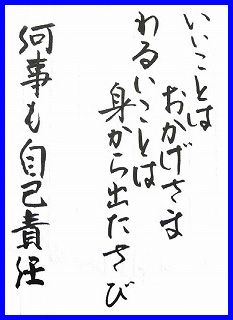 いいことは
おかげさま
わるいことは
身から出たさび
何事も自己責任